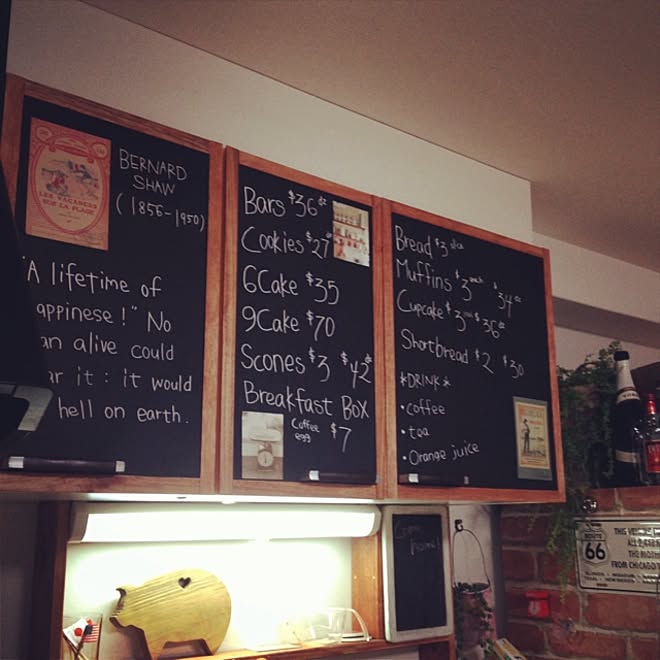 LES VACANCES
SUR LA PLAGE
BERNARD
SHAW
(1856-1950)
"A lifetime of
appinese!" No
an alive could
ar it: it would
hell on earth.
Bars $36 dz
Cookies $27 dz
6Cake $35
9Cake $70
Scones $3 $42 dz
Breakfast Box
Coffee
egg
$7
Bread $3 slice
Muffins $3 each $34 dz
Cupcake $3 each $36 dz
Shortbread $2 $30
*DRINK*
•coffee
•tea
•Orange juice
Come
home!
ROUTE
66
ALL 2,448
FROM CHICAGO